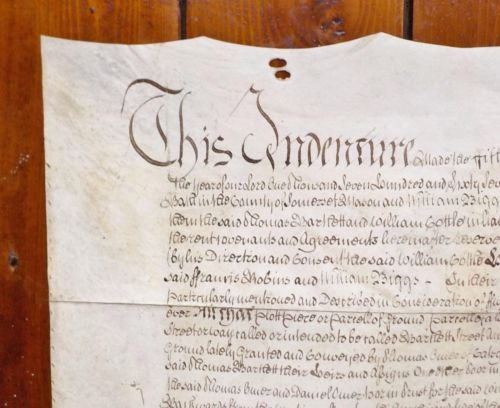 This Indenture Made the fift
the Year of our Lord One Thousand Seven Hundred and Sixty Seve
Bath in the County of Somerset Mason and William Biggs
them the said Thomas Bartlett and William Cottle in
the rent Covenants and Agreements hereinafter Reserve
(by his Direction and Consent the said William Cottle
said Francis Robins and William Biggs - In their
particularly mentioned and Described in Consideration of
ever All that Plott Piece or Parcell of Ground Parcell of a
Street or way called or intended to be called Bartlett Street an
Ground lately Granted and Conveyed by Thomas Omer of
said Thomas Bartlett their Heirs and Assigns One other door in
the said Thomas Omer and Daniel Omer door in trust for the said